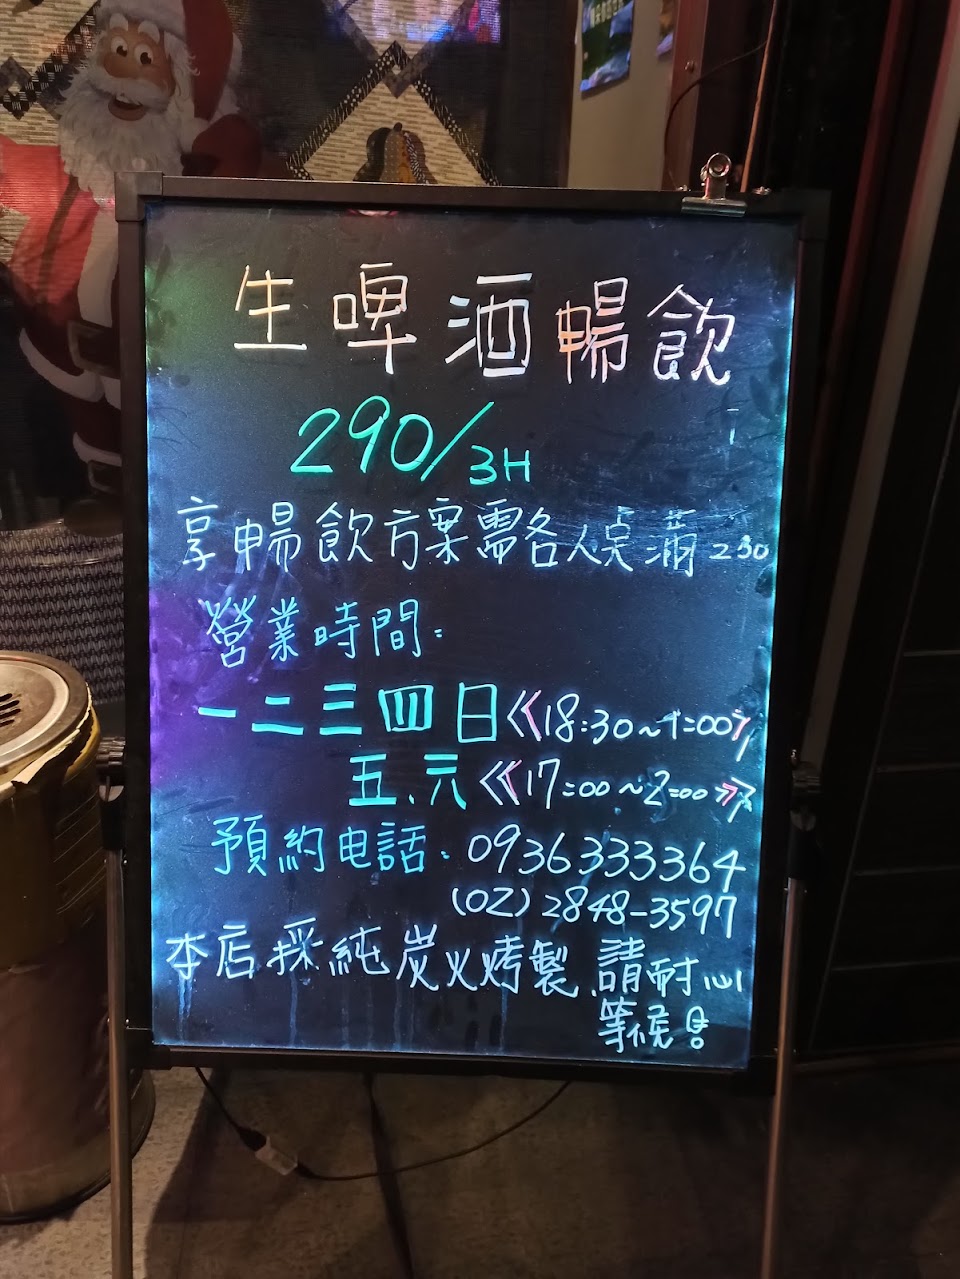 生啤酒暢飲
290/3H
享暢飲方案需各人點滿250
營業時間:
一二三四日《18:30~1:00》
五、六《17:00~2:00》
預約电話:0936333364
(02)2848-3597
本店採純炭火烤製,請耐心
等候!